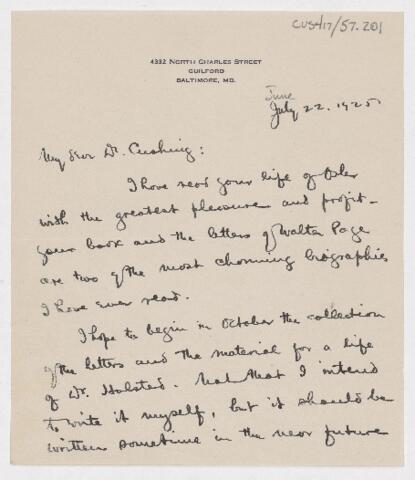 CUS417/57.201
4332 NORTH CHARLES STREET
GUILFORD
BALTIMORE, MD.
June
July 22. 1925
My dear Dr. Cushing:
I have read your life of Osler
with the greatest pleasure and profit -
your book and the letters of Walter Page
are two of the most charming biographies
I have ever read.
I hope to begin in October the collection
of the letters and the material for a life
of Dr. Halsted. Not that I intend
to write it myself, but it should be
written sometime in the near future